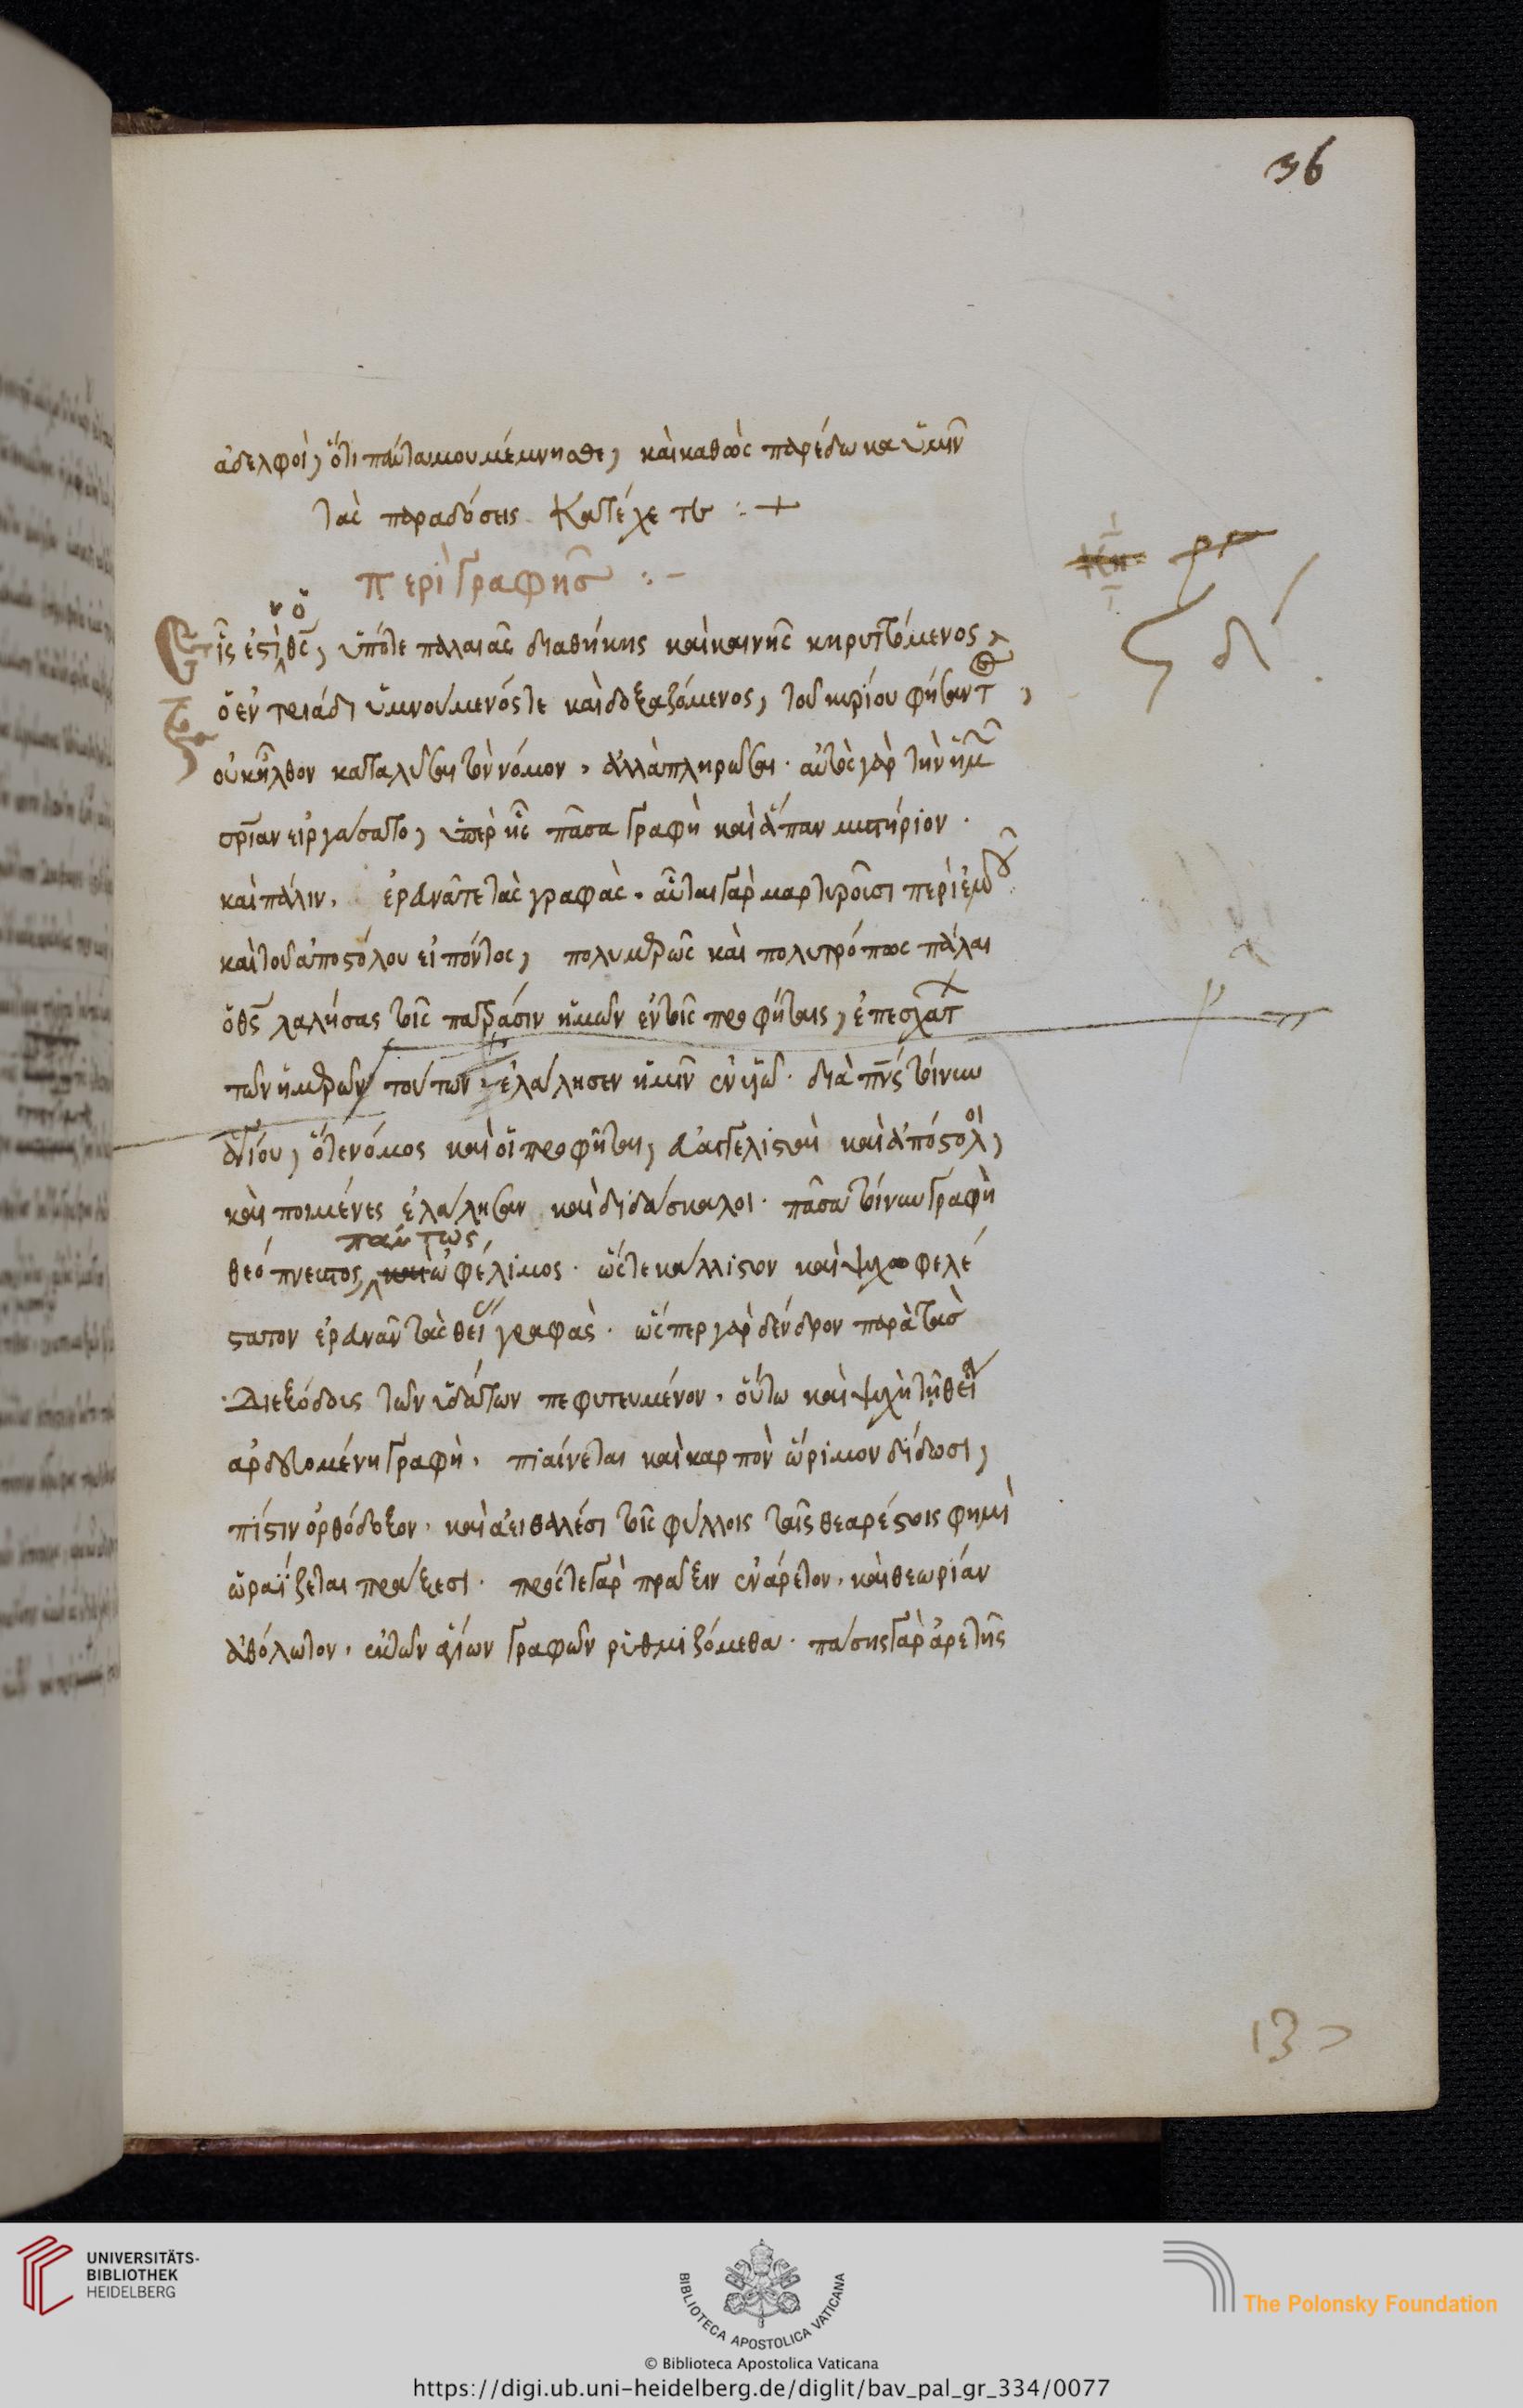 36
ἀδελφοὶ, ὅτι πάντα μου μέμνησθε, καὶ καθὼς παρέδωκα ὑμῖν
τὰς παραδόσεις κατέχετε :+
περὶ γραφῆς :-
Εἷς ἐστὶν ὁ θς, ὑπότε παλαιᾶς διαθήκης καὶ καινῆς κηρυττόμενος,
ὁ ἐν τριάδι ὑμνούμενός τε καὶ δοξαζόμενος, τοῦ κυρίου φήσαντ,
οὐκ ἦλθον καταλῦσαι τὸν νόμον, ἀλλὰ πληρῶσαι. αὐτὸς γὰρ τὴν ἡμῶν
σρίαν εἰργάσατο, ὑπὲρ ἧς πᾶσα γραφὴ καὶ ἅπαν μυστήριον.
καὶ πάλιν. ἐρευνᾶτε τὰς γραφὰς. αὗται γὰρ μαρτυροῦσι περὶ ἐμοῦ.
καὶ τοῦ ἀποστόλου εἰπόντος, πολυμερῶς καὶ πολυτρόπως πάλαι
ὁ θς λαλήσας τοῖς πατράσιν ἡμῶν ἐν τοῖς προφήταις, ἐπεσχάτ
τῶν ἡμερῶν τούτων ἐλάλησεν ἡμῖν ἐν υἱῷ. διὰ πνς τοίνυν
ἁγίου, ὅτε νόμος καὶ οἱ προφῆται, εὐαγγελισταὶ καὶ ἀπόστολοι,
καὶ ποιμένες ἐλάλησαν καὶ διδάσκαλοι. πᾶσα τοίνυν γραφὴ
πάντως,
θεόπνευστος, καὶ ὠφέλιμος. ὥστε κάλλιστον καὶ ψυχωφελέ
στατον ἐρευνᾶν τὰς θεί γραφὰς. ὥσπερ γὰρ δένδρον παρὰ τὰς
διεξόδους τῶν ὑδάτων πεφυτευμένον. οὕτω καὶ ψυχὴ τῇ θείᾳ
ἀρδευομένη γραφῇ. πιαίνεται καὶ καρπὸν ὥριμον δίδωσι,
πίστιν ὀρθόδοξον. καὶ ἀειθαλέσι τοῖς φύλλοις ταῖς θεαρέστοις φημὶ
ὡραΐζεται πράξεσι. πρός τε γὰρ πρᾶξιν ἐνάρετον. καὶ θεωρίαν
ἀθόλωτον. ἐκ τῶν ἁγίων γραφῶν ῥυθμιζόμεθα. πάσης γὰρ ἀρετῆς
13
UNIVERSITÄTS-
BIBLIOTHEK
HEIDELBERG
BIBLIOTECA APOSTOLICA VATICANA
The Polonsky Foundation
© Biblioteca Apostolica Vaticana
https://digi.ub.uni-heidelberg.de/diglit/bav_pal_gr_334/0077